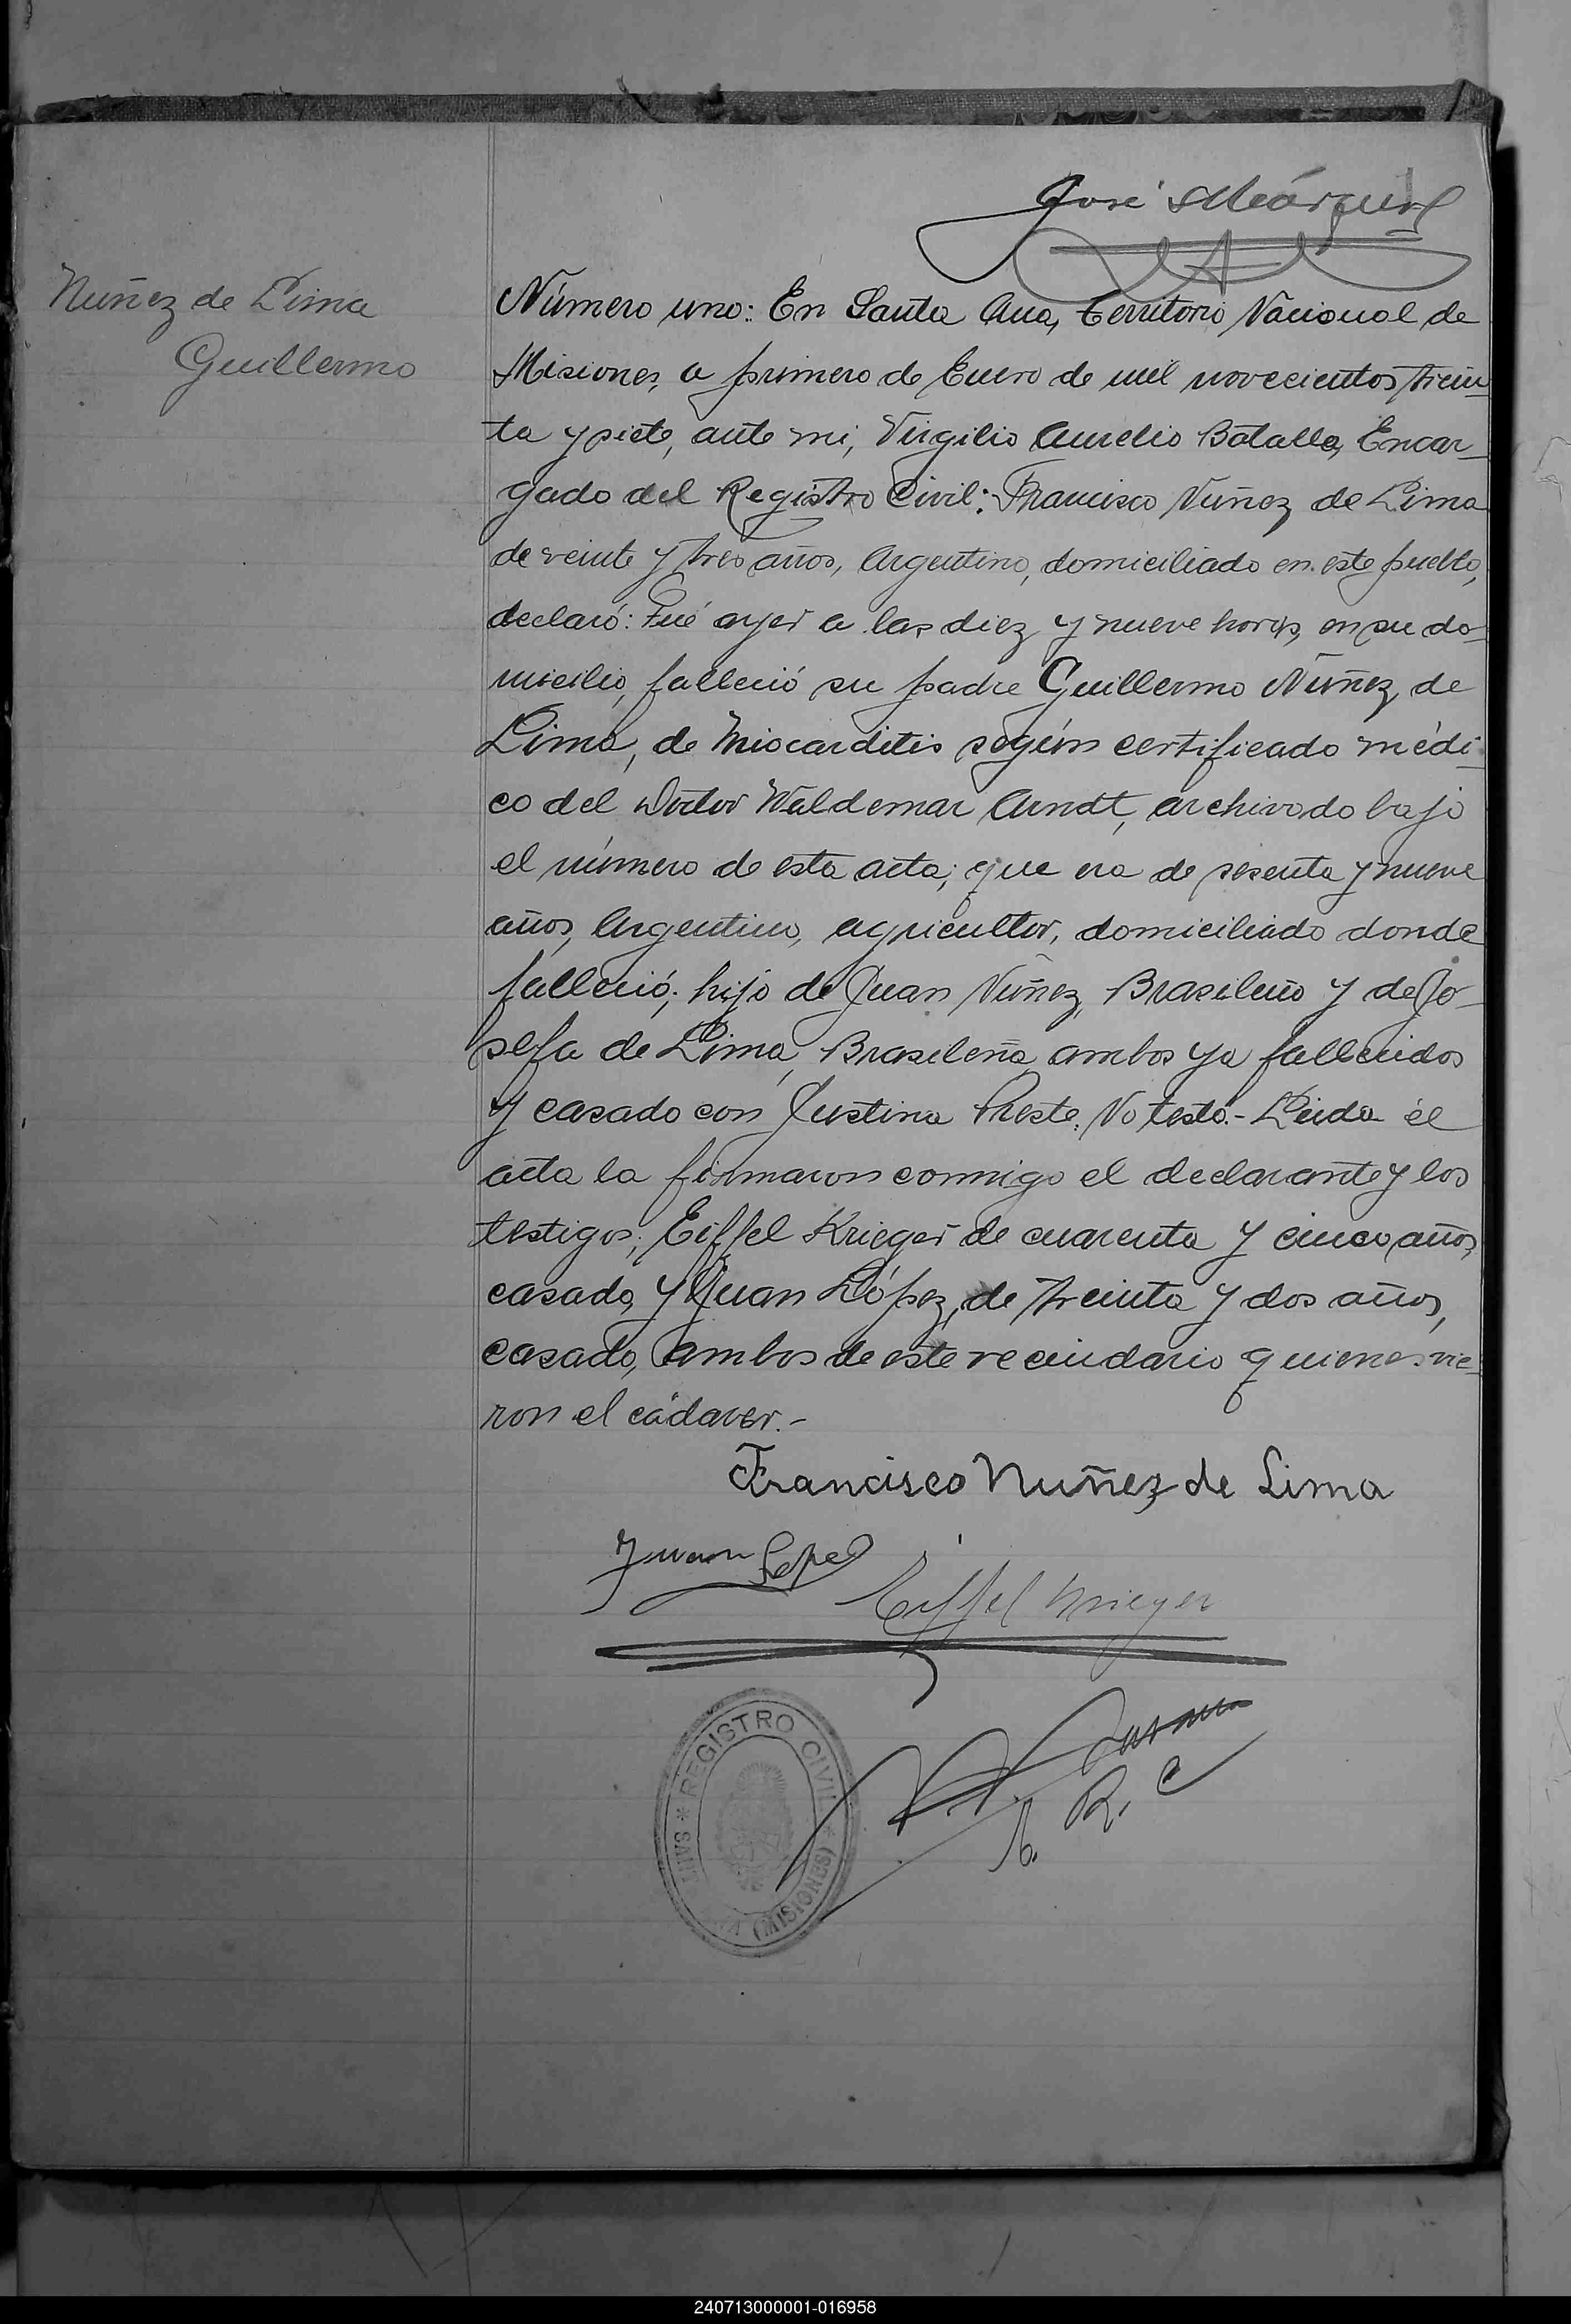 José Márquez
Nuñez de Lima
Guillermo
Número uno: En Santa Ana, Territorio Nacional de
Misiones, a primero de Enero de mil novecientos trein-
ta y siete, ante mi, Virgilio Aurelio Batalla, Encar-
gado del Registro Civil: Francisco Núñez de Lima
de veinte y tres años, Argentino, domiciliado en este pueblo,
declaró: Fué ayer a las diez y nueve horas, en su do-
micilio, falleció su padre Guillermo Núñez de
Lima, de Miocarditis según certificado médi-
co del Doctor Waldemar Arndt, archivado bajo
el número de esta acta; que era de sesenta y nueve
años, Argentino, agricultor, domiciliado donde
falleció; hijo de Juan Núñez, Brasileño y de Jo-
sefa de Lima, Brasileña ambos ya fallecidos
y casado con Justina Preste. No testó.- Leida el
acta la firmaron conmigo el declarante y los
testigos; Eiffel Krieger de cuarenta y cinco años,
casado, y Juan López, de treinta y dos años,
casado, ambos de este vecindario quienes vie-
ron el cádaver.-
Francisco Nuñez de Lima
Juan Lopez
Eiffel Krieger
REGISTRO CIVIL
* SANT
(MISIONES) *
R. C
240713000001-016958